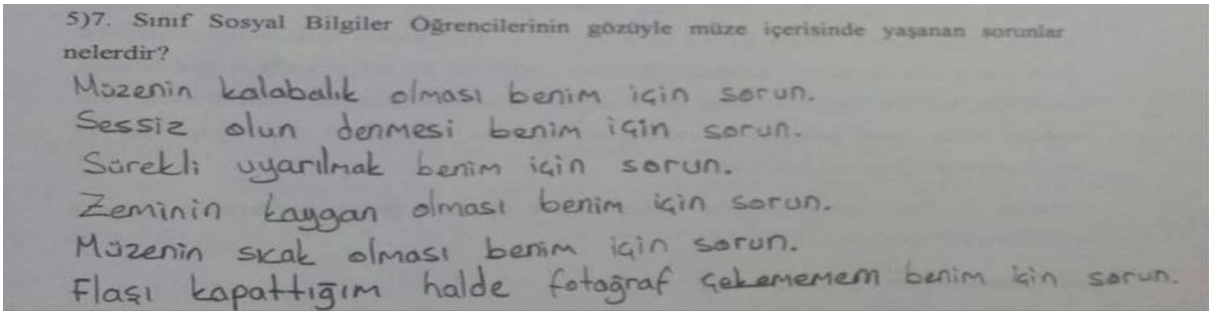 5)7. Sınıf Sosyal Bilgiler Öğrencilerinin gözüyle müze içerisinde yaşanan sorunlar
nelerdir?
Müzenin kalabalık olması benim için sorun.
Sessiz olun denmesi benim için sorun.
Sürekli uyarılmak benim için sorun.
Zeminin kaygan olması benim için sorun.
Müzenin sıcak olması benim için sorun.
Flaşı kapattığım halde fotoğraf çekememem benim için sorun.